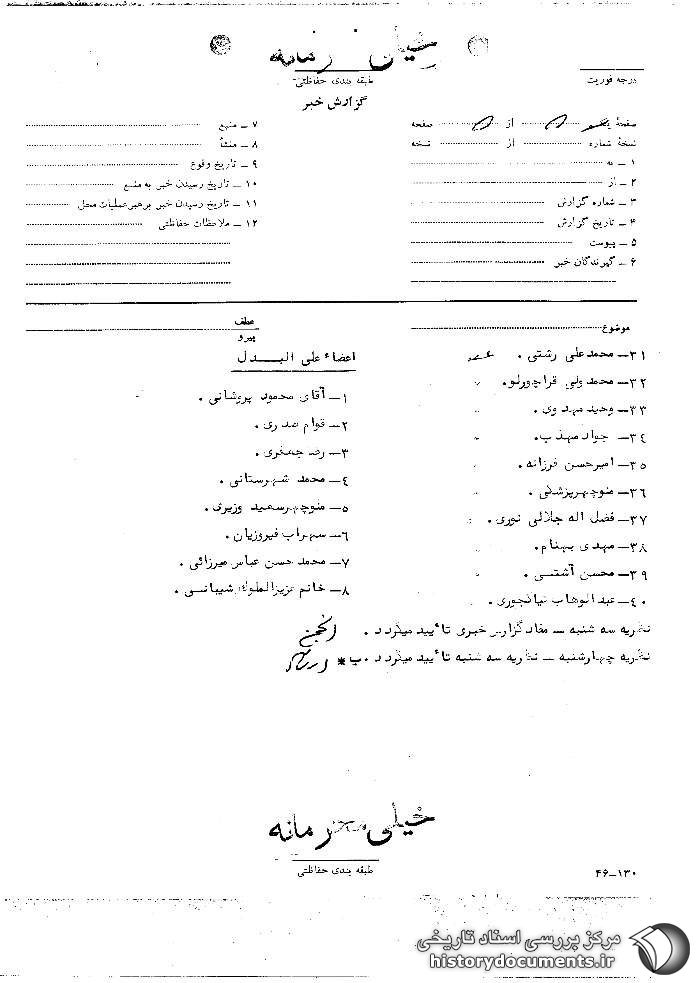 خیلی محرمانه
طبقه بندی حفاظتی
درجه فوریت
گزارش خبر
صفحهٔ ... از ... صفحه
نسخهٔ شماره ... از ... نسخه
۱ ـ به
۲ ـ از
۳ ـ شماره گزارش
۴ ـ تاریخ گزارش
۵ ـ پیوست
۶ ـ گیرندگان خبر
۷ ـ منبع
۸ ـ منشأ
۹ ـ تاریخ وقوع
۱۰ ـ تاریخ رسیدن خبر به منبع
۱۱ ـ تاریخ رسیدن خبر برهبر عملیات محل
۱۲ ـ ملاحظات حفاظتی
موضوع
عطف
پیرو
۳۱ـ محمدعلی رشتی . عضو
۳۲ـ محمد ولی قراچورلو. "
۳۳ـ وحید مهدوی . "
۳۴ـ جواد مهذب. "
۳۵ـ امیرحسن فرزانه . "
۳۶ـ منوچهر پزشکی . "
۳۷ـ فضل اله جلالی نوری . "
۳۸ـ مهدی بهنام. "
۳۹ـ محسن آشتی . "
۴۰ـ عبدالوهاب نیانجوری .
اعضاء علی البدل
۱ـ آقای محمود پروشانی .
۲ـ قوام صدری .
۳ـ رضا جعفری .
۴ـ محمد شهرستانی .
۵ـ منوچهر سعید وزیری .
۶ـ سهراب فیروزیان .
۷ـ محمد حسن عباس میرزائی .
۸ـ خانم عزیزالملوک شیبانی .
نظریه سه شنبه ـ مفاد گزارش خبری تأیید میگردد .
نظریه چهارشنبه ـ نظریه سه شنبه تأیید میگردد . ب*
خیلی محرمانه
طبقه بندی حفاظتی
۴۶ـ۱۳۰
مرکز بررسی اسناد تاریخی
historydocuments.ir